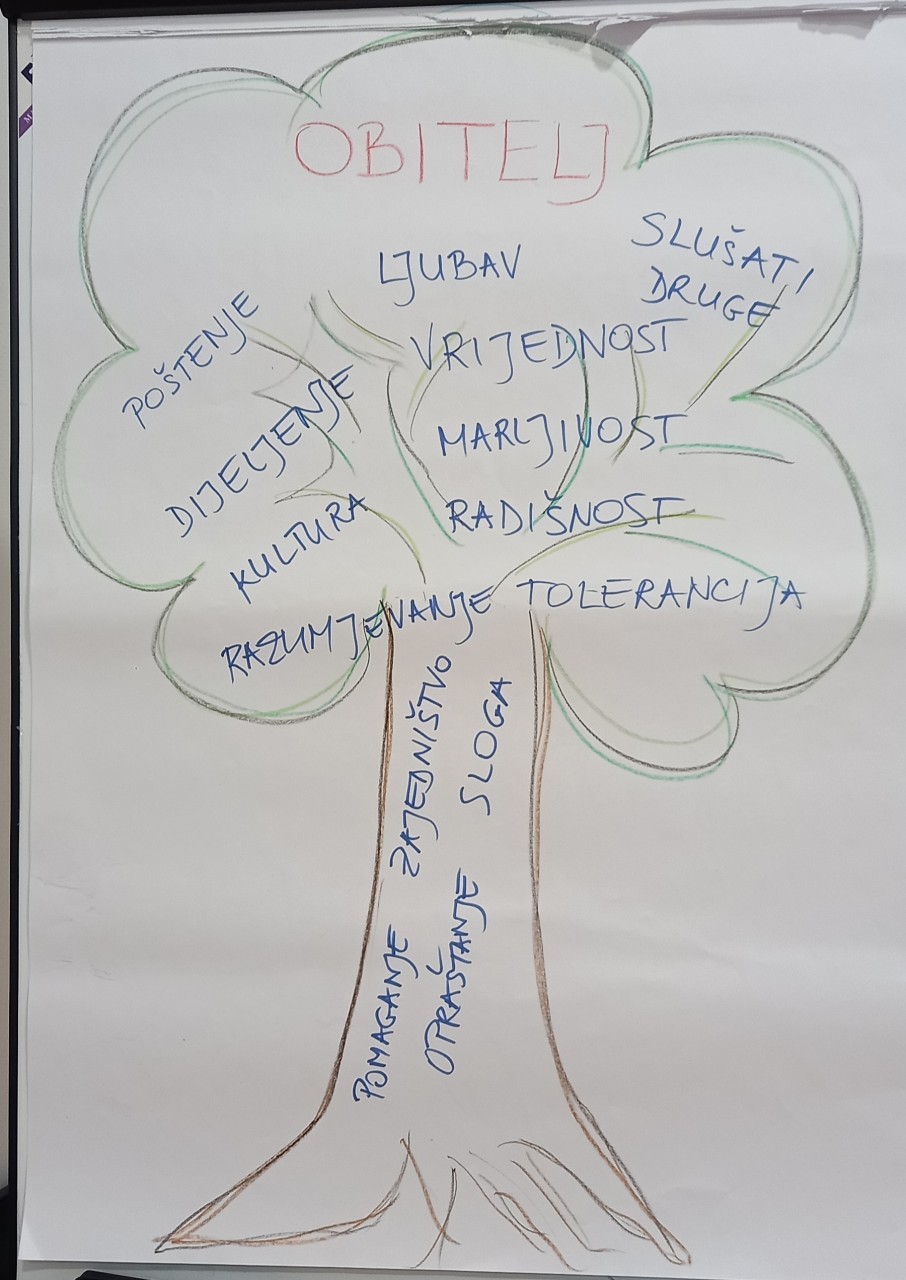 OBITELJ
LJUBAV
SLUŠATI
DRUGE
POŠTENJE
VRIJEDNOST
DIJELJENJE
MARLJIVOST
KULTURA
RADIŠNOST
RAZUMJEVANJE
TOLERANCIJA
ZAJEDNIŠTVO
SLOGA
POMAGANJE
OPRAŠTANJE